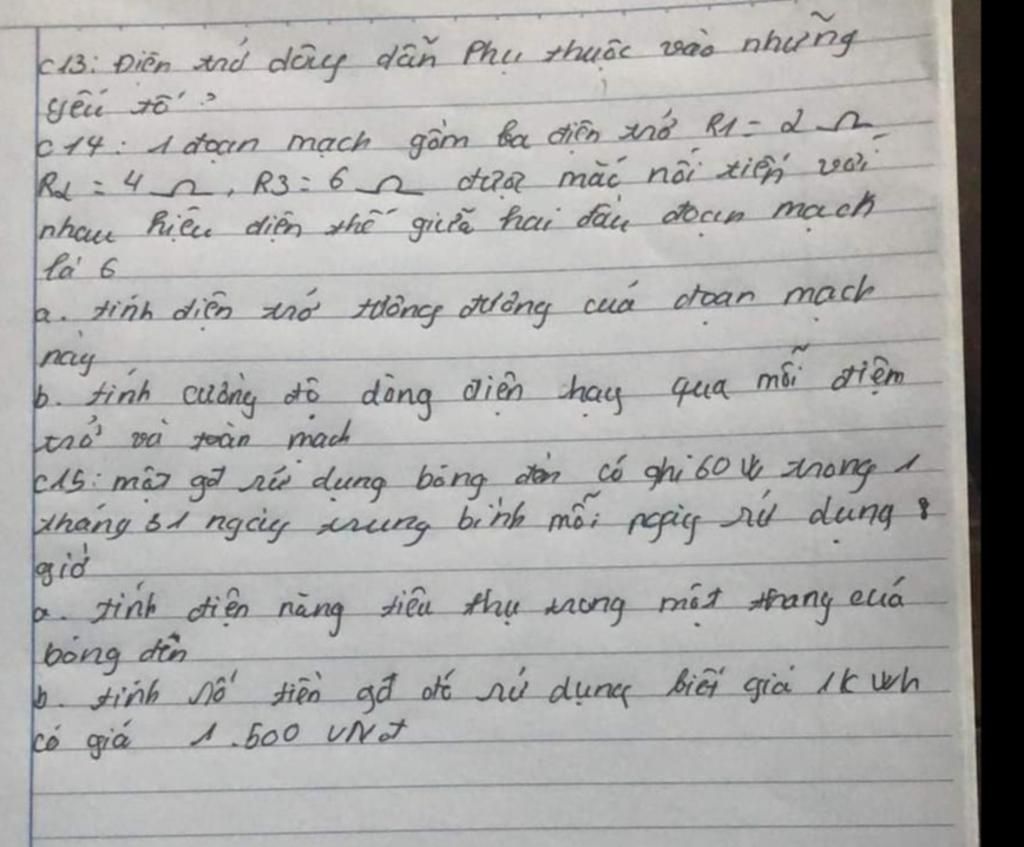 C13: Điện trở dây dẫn Phụ thuộc vào những
yếu tố ?
C14: 1 đoạn mạch gồm ba điện trở R1 = 2 Ω
R2 = 4 Ω, R3 = 6 Ω được mắc nối tiếp với
nhau hiệu điện thế giữa hai đầu đoạn mạch
là 6
a. tính điện trở tương đương của đoạn mạch
này
b. tính cường độ dòng điện chạy qua mỗi điệm
trở và toàn mạch
C15: một gđ sử dụng bóng đèn có ghi 60 W trong 1
tháng 31 ngày trung bình mỗi ngày sử dụng 8
giờ
a. tính điện năng tiêu thụ trong một thang của
bóng đèn
b. tính số tiền gđ đó sử dụng biết giá 1 k Wh
có giá 1.500 VNđ